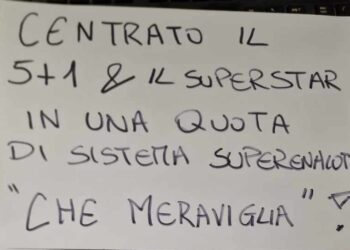 CENTRATO IL
5+1 & IL SUPERSTAR
IN UNA QUOTA
DI SISTEMA SUPERENALOT
"CHE MERAVIGLIA"!